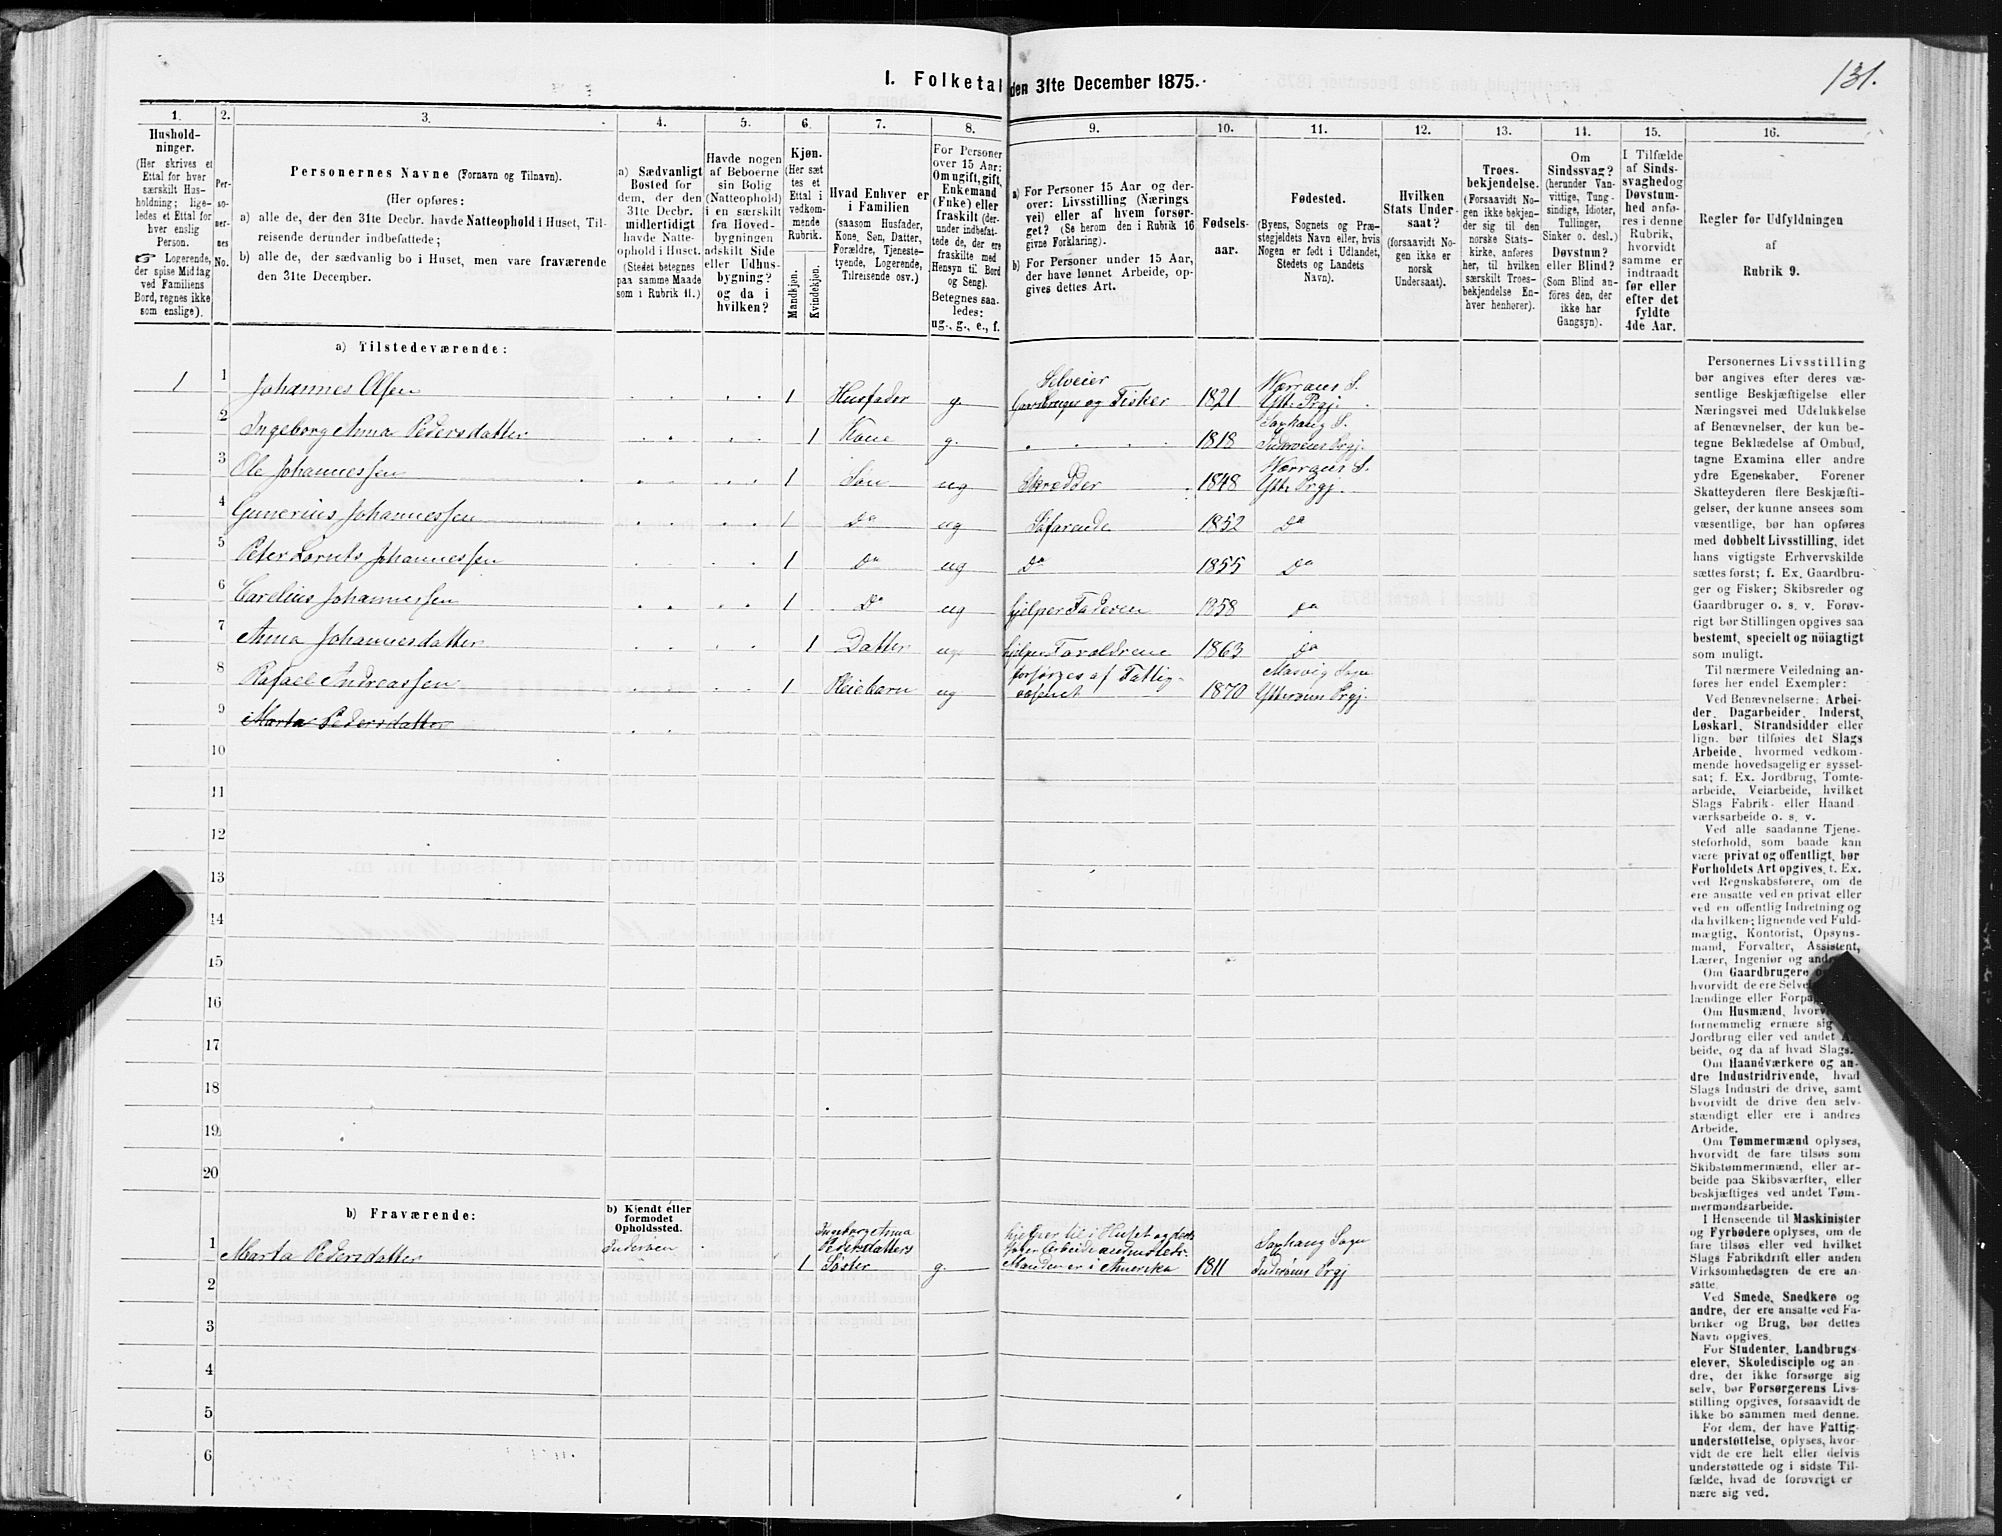 131.
I. Folketal den 31te December 1875.
1.
Hushold-
ninger.
(Her skrives et
Ettal for hver
særskilt Hus-
holdning; lige-
ledes et Ettal for
hver enslig
Person.
☞ Logerende,
der spise Middag
ved Familiens
Bord, regnes ikke
som enslige).
2.
Per-
so-
ner-
nes
No.
3.
Personernes Navne (Fornavn og Tilnavn).
(Her opføres:
a) alle de, der den 31te Decbr. havde Natteophold i Huset, Til-
reisende derunder indbefattede;
b) alle de, der sædvanlig bo i Huset, men vare fraværende
den 31te December.
4.
a) Sædvanligt
Bosted for
dem, der den
31te Decbr.
midlertidigt
havde Natte-
ophold i Huset.
(Stedet betegnes
paa samme Maade
som i Rubrik 11.)
5.
Havde nogen
af Beboerne
sin Bolig
(Natteophold)
i en særskilt
fra Hoved-
bygningen
adskilt Side
eller Udhus-
bygning?
og da i
hvilken?
6.
Kjøn.
(Her sæt
tes et
Ettal i
vedkom-
mende
Rubrik.
Mandkjøn.
Kvindekjøn.
7.
Hvad Enhver er
i Familien
(saasom Husfader,
Kone, Søn, Datter,
Forældre, Tjeneste-
tyende, Logerende,
Tilreisende osv.)
8.
For Personer
over 15 Aar:
Om ugift, gift,
Enkemand
(Enke) eller
fraskilt (der-
under indbefat-
tede de, der ere
fraskilte med
Hensyn til Bord
og Seng).
Betegnes saa-
ledes:
ug., g., e., f.
9.
a) For Personer 15 Aar og der-
over: Livsstilling (Nærings
vei) eller af hvem forsør-
get? (Se herom den i Rubrik 16
givne Forklaring).
b) For Personer under 15 Aar,
der have lønnet Arbeide, op-
gives dettes Art.
10.
Fødsels-
aar.
11.
Fødested.
(Byens, Sognets og Præ-
stegjeldets Navn eller, hvis
Nogen er født i Udlandet,
Stedets og Landets
Navn).
12.
Hvilken
Stats Under-
saat?
(forsaavidt No-
gen ikke er
norsk
Undersaat).
13.
Troes-
bekjendelse.
(Forsaavidt No-
gen ikke bekjen-
der sig til den
norske Stats-
kirke, anføres
her, til hvilken
særskilt Troes-
bekjendelse En-
hver henhører).
14.
Om
Sindssvag?
(herunder Van-
vittige, Tung-
sindige, Idioter,
Tullinger,
Sinker o. desl.)
Døvstum?
eller Blind?
(Som Blind an-
føres den, der
ikke har
Gangsyn).
15.
I Tilfælde
af Sinds-
svaghed og
Døvstum-
hed anfø-
res i denne
Rubrik,
hvorvidt
samme er
indtraadt
før eller
efter det
fyldte
4de Aar.
16.
Regler for Udfyldningen
af
Rubrik 9.
a) Tilstedeværende:
1 1 Johannes Olsen 1 Husfader g. Selveier Gaardbruger og Fisker 1821 Værrans S. Ytt. Prgj.
2 Ingeborg Anna Pedersdatter 1 Kone g. 1818 Saxhaug S. Inderøens Prgj.
3 Ole Johannessen 1 Søn ug Skrædder 1848 Værrans S. Ytt. Prgj.
4 Gunerius Johannessen 1 Do ug Søfarende 1852 Do
5 Peter Lornts Johannessen 1 Do ug Do 1855 Do
6 Cardius Johannessen 1 Do ug hjelper Faderen 1858 Do
7 Anna Johannesdatter 1 Datter ug. hjelper Forældrene 1863 Do
8 Rafael Andreassen 1 Pleiebarn ug forsørges af Fattig-væsenet 1870 Mosvig Sogn Ytterøens Prgj.
9 Marta Pedersdatter
10
11
12
13
14
15
16
17
18
19
20
b) Fraværende:
b) Kjendt eller
formodet
Opholdssted.
1 Marta Pedersdatter Inderøen 1 Ingeborg Anna Pedersdatters Søster g. hjelper til i Huset og Manden er i Amerika 1811 Saxhaug Sogn Inderøens Prgj
2
3
4
5
6
Personernes Livsstilling
bør angives efter deres væ-
sentlige Beskjæftigelse eller
Næringsvei med Udelukkelse
af Benævnelser, der kun be-
tegne Beklædelse af Ombud,
tagne Examina eller andre
ydre Egenskaber. Forener
Skatteyderen flere Beskjæfti-
gelser, der kunne ansees som
væsentlige, bør han opføres
med dobbelt Livsstilling, idet
hans vigtigste Erhvervskilde
sættes først; f. Ex. Gaardbru-
ger og Fisker; Skibsreder og
Gaardbruger o. s. v. Forøv-
rigt bør Stillingen opgives saa
bestemt, specielt og nöiagtigt
som muligt.
Til nærmere Veiledning an-
føres her endel Exempler:
Ved Benævnelserne: Arbei-
der, Dagarbeider, Inderst,
Løskarl, Strandsidder eller
lign. bør tilføies det Slags
Arbeide, hvormed vedkom-
mende hovedsagelig er syssel-
sat; f. Ex. Jordbrug, Tomte-
arbeide, Veiarbeide, hvilket
Slags Fabrik- eller Haand
værksarbeide o. s. v.
Ved alle saadanne Tjene-
steforhold, som baade kan
være privat og offentligt, bør
Forholdets Art opgives, f. Ex.
ved Regnskabsførere, om de
ere ansatte ved en privat eller
ved en offentlig Indretning og
da hvilken; lignende ved Fuld-
mægtig, Kontorist, Opsyns-
mand, Forvalter, Assistent,
Lærer, Ingeniør og
Om Gaardbrugere
hvorvidt de ere
lændinge eller
Om Husmænd,
fornemmelig ernære sig
Jordbrug eller ved andet
beide, og da af hvad Slags.
Om Haandværkere og an-
dre Industridrivende, hvad
Slags Industri de drive, samt
hvorvidt de drive den selv-
stændigt eller ere i andres
Arbeide.
Om Tømmermænd oplyses,
hvorvidt de fare tilsøs som
Skibstømmermænd, eller ar-
beide paa Skibsværfter, eller
beskjæftiges ved andet Tøm-
mermandsarbeide.
I Henseende til Maskinister
og Fyrbødere oplyses, om de
fare tilsøs eller ved hvilket
Slags Fabrikdrift eller anden
Virksomhedsgren de ere an-
satte.
Ved Smede, Snedkere og
andre, der ere ansatte ved Fa-
briker og Brug, bør dettes
Navn opgives.
For Studenter, Landbrugs-
elever, Skoledisciple og an-
dre, der ikke forsørge sig
selv, bør Forsørgerens Livs-
stilling opgives, forsaavidt de
ikke bo sammen med denne.
For dem, der have Fattig-
understøttelse, oplyses, hvor-
vidt de ere helt eller delvis
understøttede og i sidste Til-
fælde, hvad de forøvrigt er
nære sig ved.